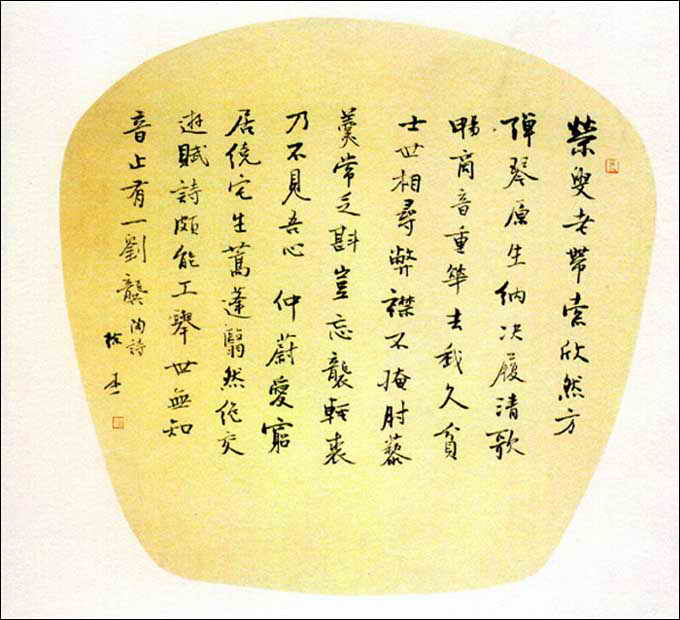 榮叟老帶索欣然方
彈琴原生納決履清歌
暢商音重華去我久貧
士世相尋弊襟不掩肘藜
羹常乏斟豈忘襲輕裘
乃不見吾心 仲蔚愛窮
居繞宅生蒿蓬翳然絕交
遊賦詩頗能工舉世無知
音止有一劉龔 陶詩